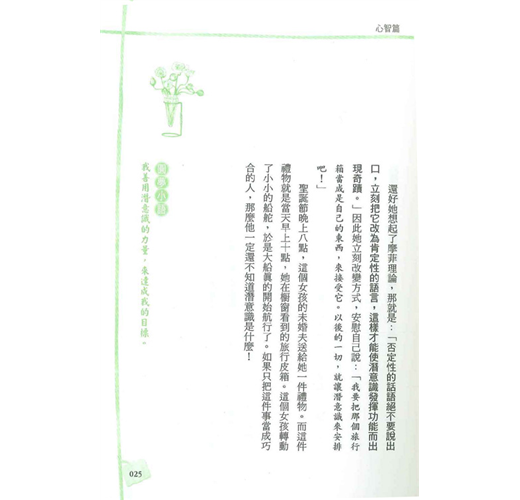 心智篇
還好她想起了摩菲理論，那就是：「否定性的話語絕不要說出
口，立刻把它改為肯定性的語言，這樣才能使潛意識發揮功能而出
現奇蹟。」因此她立刻改變方式，安慰自己說：「我要把那個旅行
箱當成是自己的東西，來接受它。以後的一切，就讓潛意識來安排
吧！」
聖誕節晚上八點，這個女孩的未婚夫送給她一件禮物。而這件
禮物就是當天早上十點，她在櫥窗看到的旅行皮箱。這個女孩轉動
了小小的船舵，於是大船真的開始航行了。如果只把這件事當成巧
合的人，那麼他一定還不知道潛意識是什麼！
我善用潛意識的力量，來達成我的目標。
025